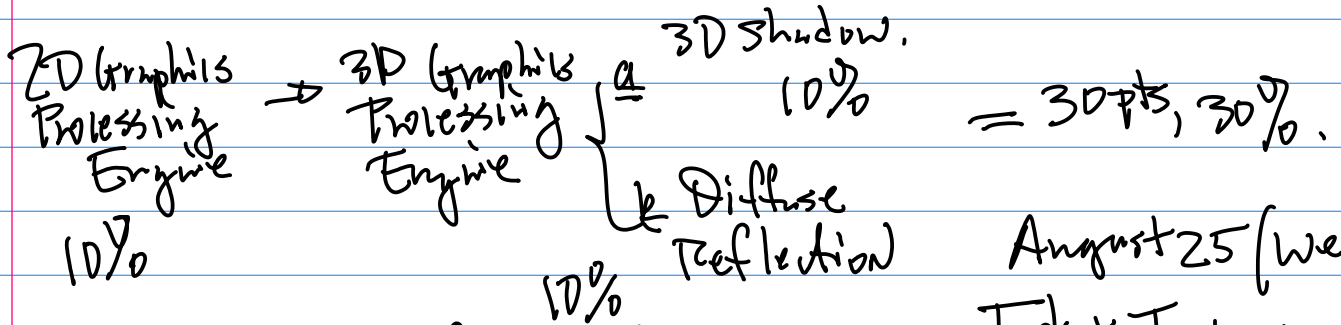 2D Graphics Processing Engine 10%
→ 3D Graphics Processing Engine 10%
a 3D Shadow. 10%
b Diffuse Reflection
= 30pts, 30%.
August 25 (We